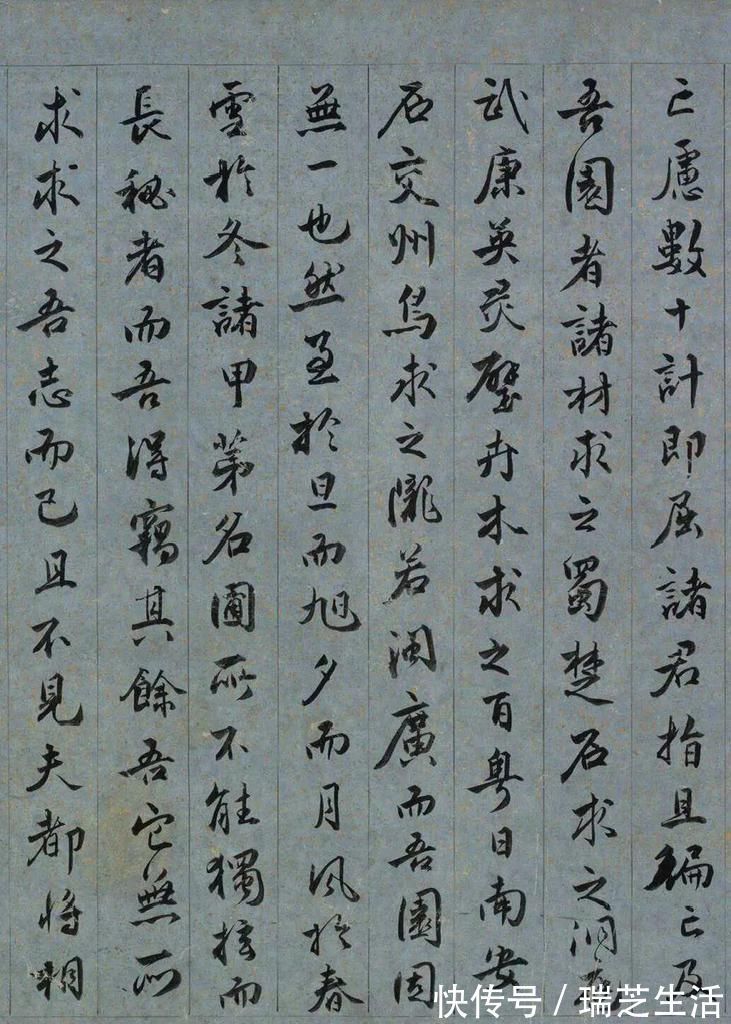 亡慮數十計即屈諸君指且徧亡及
吾園者諸材求之蜀楚石求之洞
武康英靈壁卉木求之百粤日南安
石交州鳥求之隴若閩廣而吾園固
無一也然至於旦而旭夕而月風於春
雪於冬諸甲第名圃所不能獨擅而
長秘者而吾得竊其餘吾它無所
求求之吾志而已且不見夫都將相
快传号 / 瑞芝生活